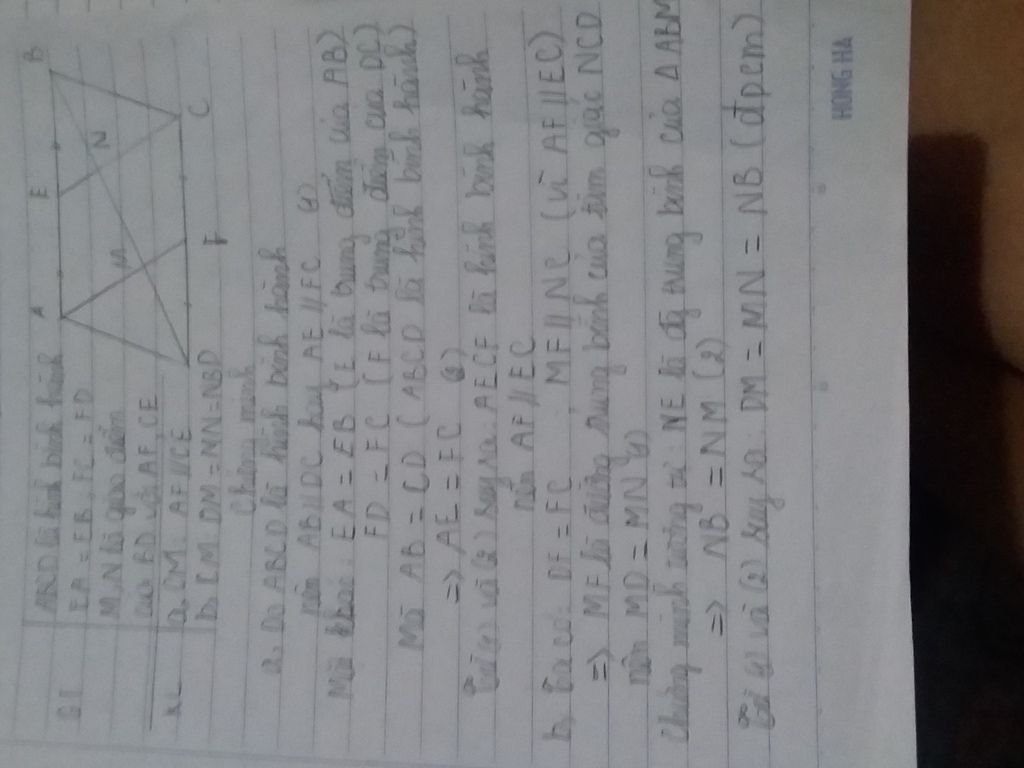 GT
ABCD là hình bình hành
EA = EB, FC = FD
M, N là giao điểm
của BD với AF, CE
KL
a, CM: AF // CE
b, CM: DM = MN = NB
A E B
M N
F C
Chứng minh
a. Do ABCD là hình bình hành
nên AB // DC hay AE // FC (1)
Mặt khác: EA = EB (E là trung điểm của AB)
FD = FC (F là trung điểm của DC)
Mà AB = CD (ABCD là hình bình hành)
=> AE = FC (2)
Từ (1) và (2) suy ra: AECF là hình bình hành
nên AF // EC
b, Ta có: DF = FC MF // NC (vì AF // EC)
=> MF là đường trung bình của tam giác NCD
nên MD = MN (1)
Chứng minh tương tự: NE là đg trung bình của Δ ABM
=> NB = NM (2)
Từ (1) và (2) suy ra: DM = MN = NB (đpcm)
HONG HA